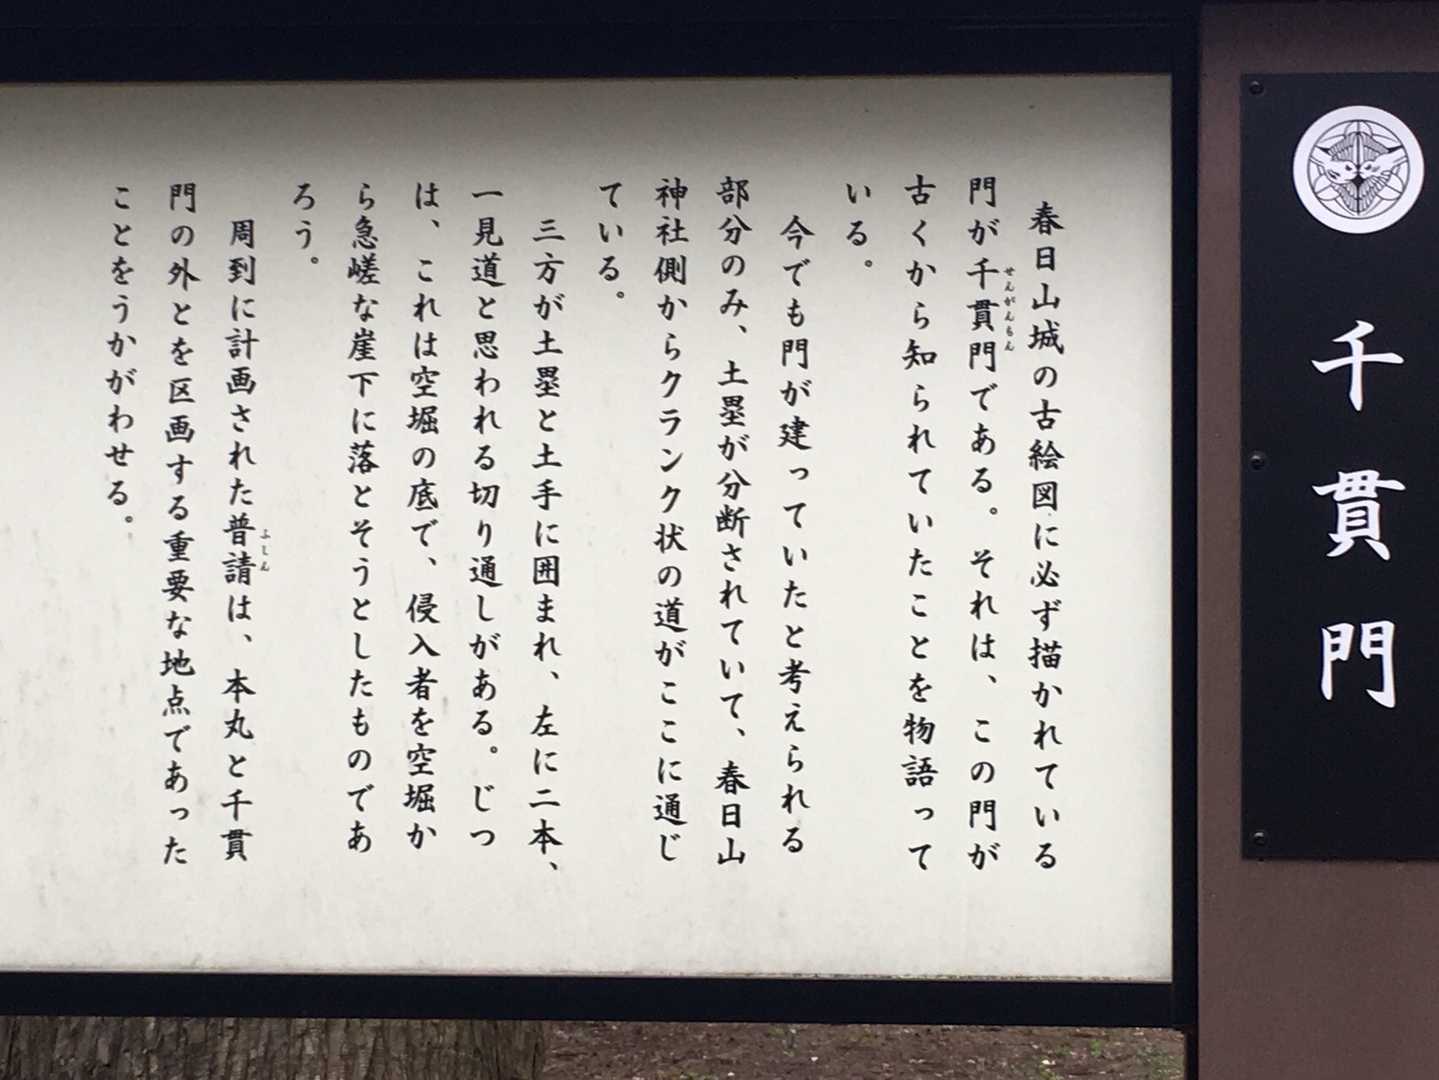 千貫門
春日山城の古絵図に必ず描かれている
門が千貫門である。それは、この門が
せんがんもん
古くから知られていたことを物語って
いる。
今でも門が建っていたと考えられる
部分のみ、土塁が分断されていて、春日山
神社側からクランク状の道がここに通じ
ている。
三方が土塁と土手に囲まれ、左に二本、
一見道と思われる切り通しがある。じつ
は、これは空堀の底で、侵入者を空堀か
ら急嵯な崖下に落とそうとしたものであ
ろう。
周到に計画された普請は、本丸と千貫
ふしん
門の外とを区画する重要な地点であった
ことをうかがわせる。